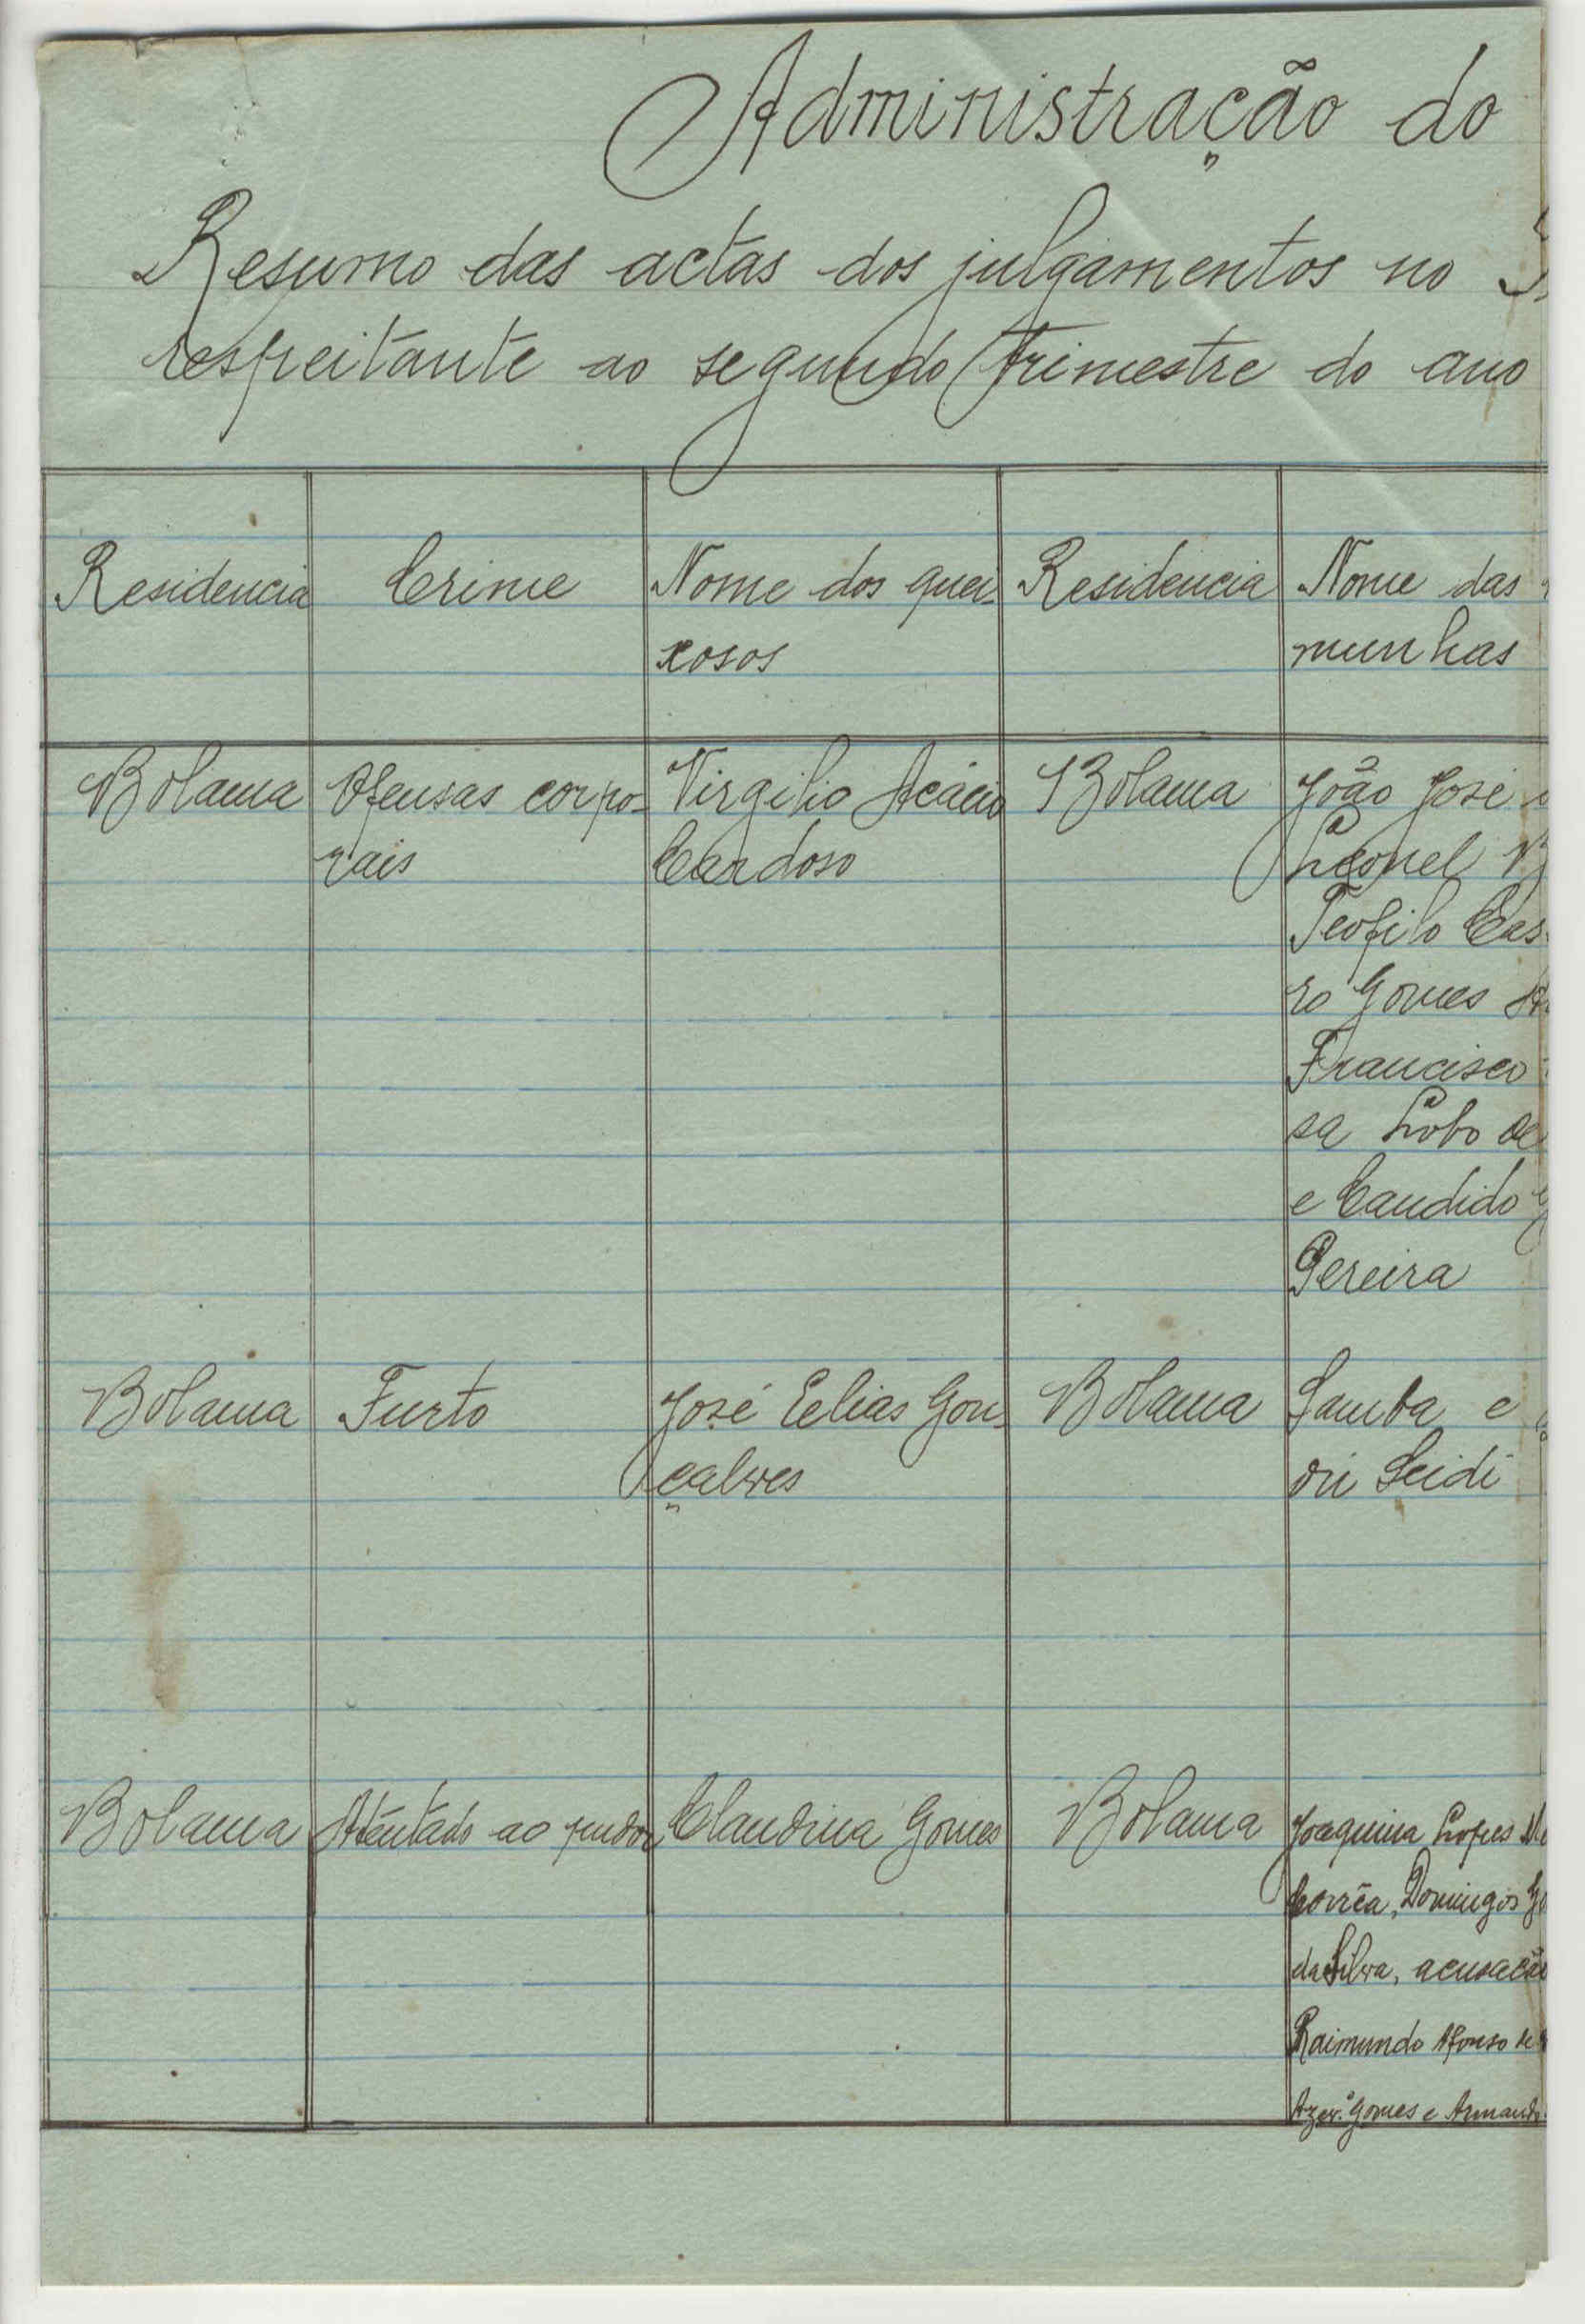 Administração do
Resumo das actas dos julgamentos no
respeitante ao segundo trimestre do ano
Residencia
Crime
Nome dos quei-
xosos
Residencia
Nome das
munhas
Bolama
Ofensas corpo-
rais
Virgilio Acácio
Cardoso
Bolama
João José
Leonel
Teofilo Cas-
ro Gomes
Francisco
sa Lobo de
e Candido
Pereira
Bolama
Furto
José Elias Gon-
çalves
Bolama
Samba e
Seidi
Bolama
Atentado ao pudor
Claudina Gomes
Bolama
Joaquina Lopes
Corrêa, Domingos
da Silva, acusação
Raimundo Afonso de
Azev.º Gomes e Armando